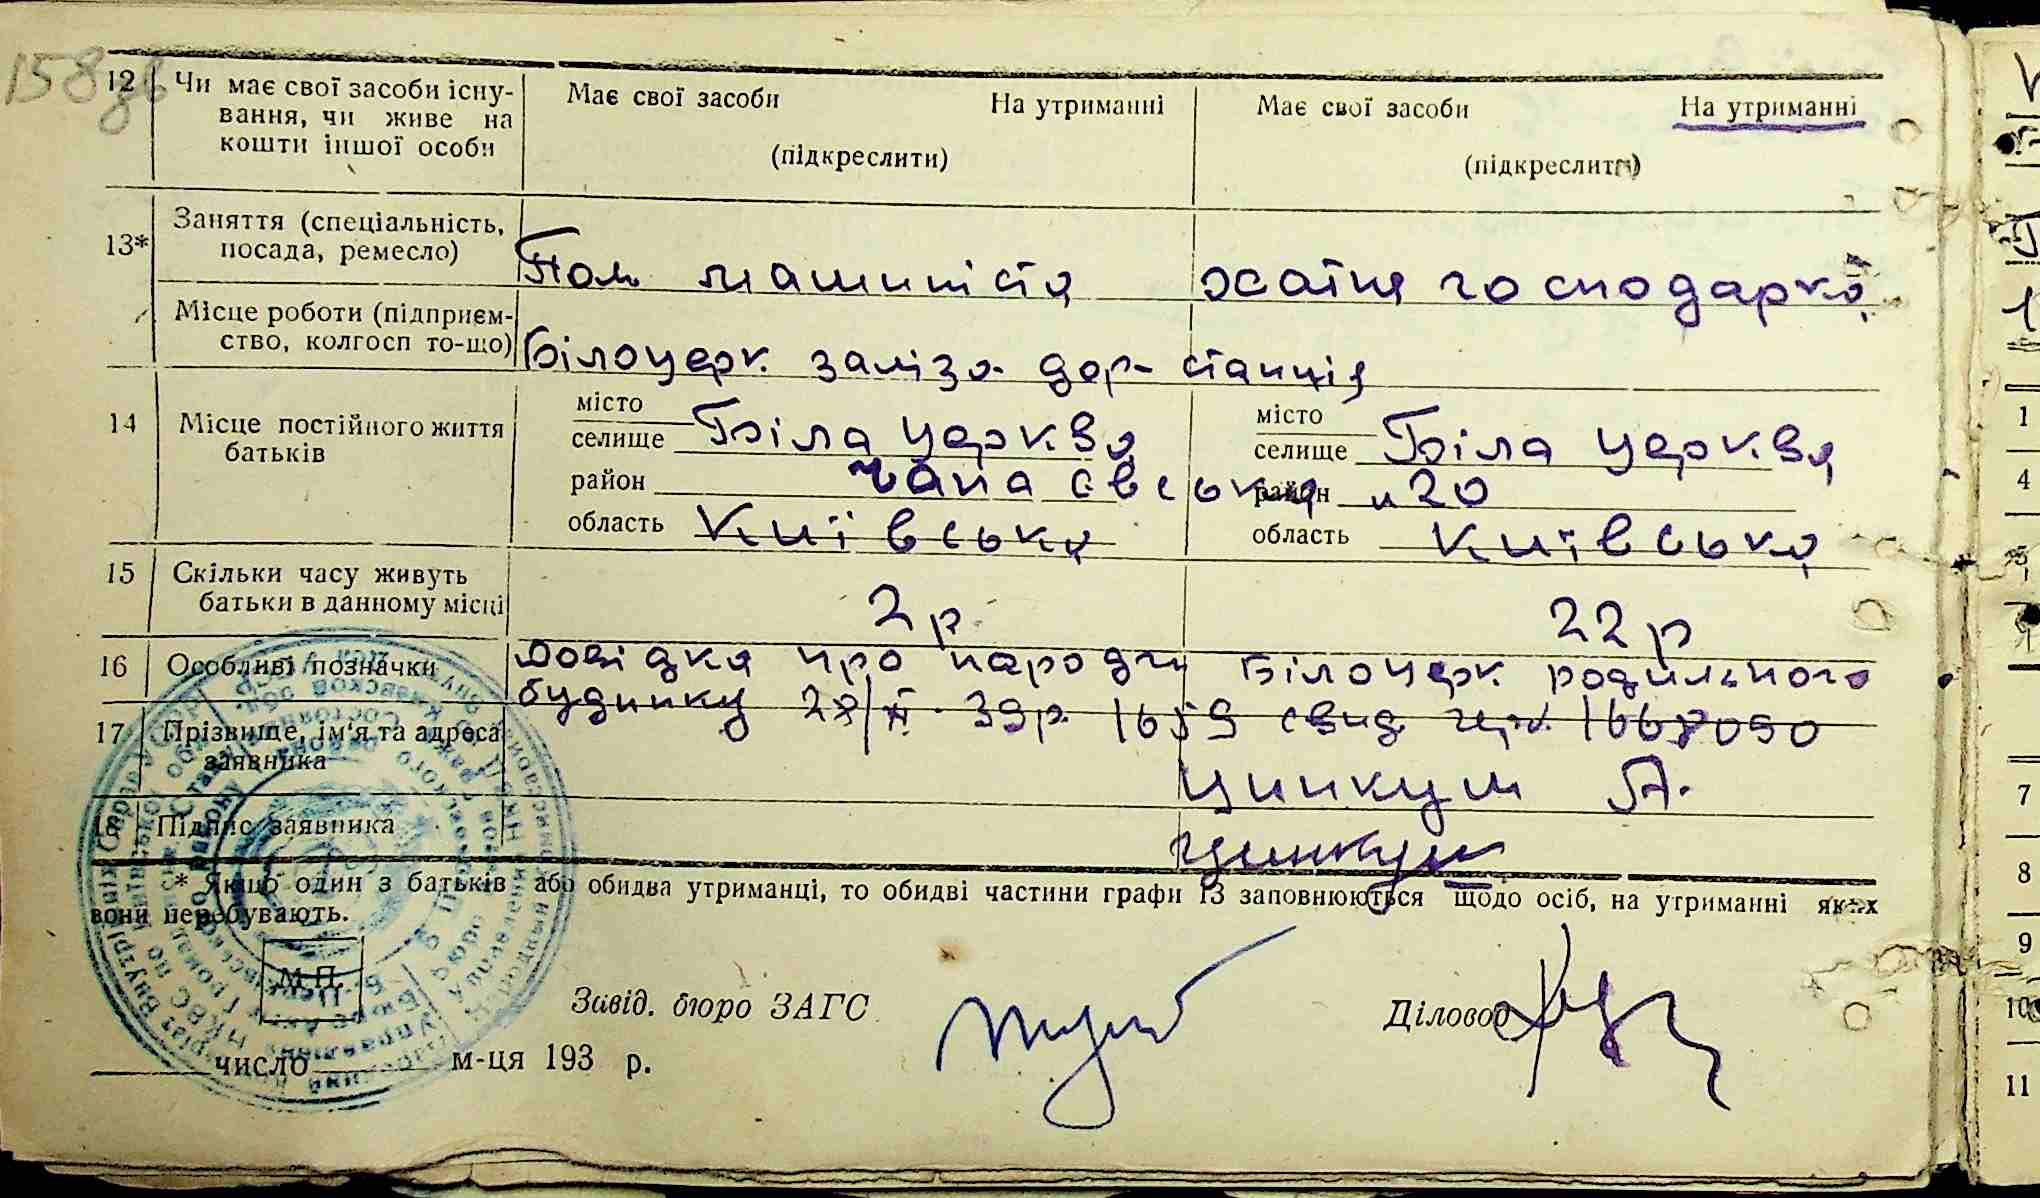 158
12 Чи має свої засоби існу- Має свої засоби На утриманні Має свої засоби На утриманні
вання, чи живе на
кошти іншої особи (підкреслити) (підкреслити)
13* Заняття (спеціальність,
посада, ремесло) Пом машиніста хатня господарка
Місце роботи (підприєм-
ство, колгосп то-що) Білоцерк. залізо-дор- станція
14 Місце постійного життя
батьків
місто місто
селище Біла Церква селище Біла Церква
район Чапаєвська район 20
область Київська область Київська
15 Скільки часу живуть
батьки в данному місці 2 р. 22 р
16 Особливі позначки Довідка про народж Білоцерк родильного
будинку 39 р. свид
17 Прізвище, ім'я та адреса
заявника Цинкуш А.
18 Підпис заявника
* Якщо один з батьків або обидва утриманці, то обидві частини графи 13 заповнюються щодо осіб, на утриманні яких
вони перебувають.
М.П.
Завід. бюро ЗАГС Діловод
число м-ця 193 р.
1
4
5
7
8
9
10
11